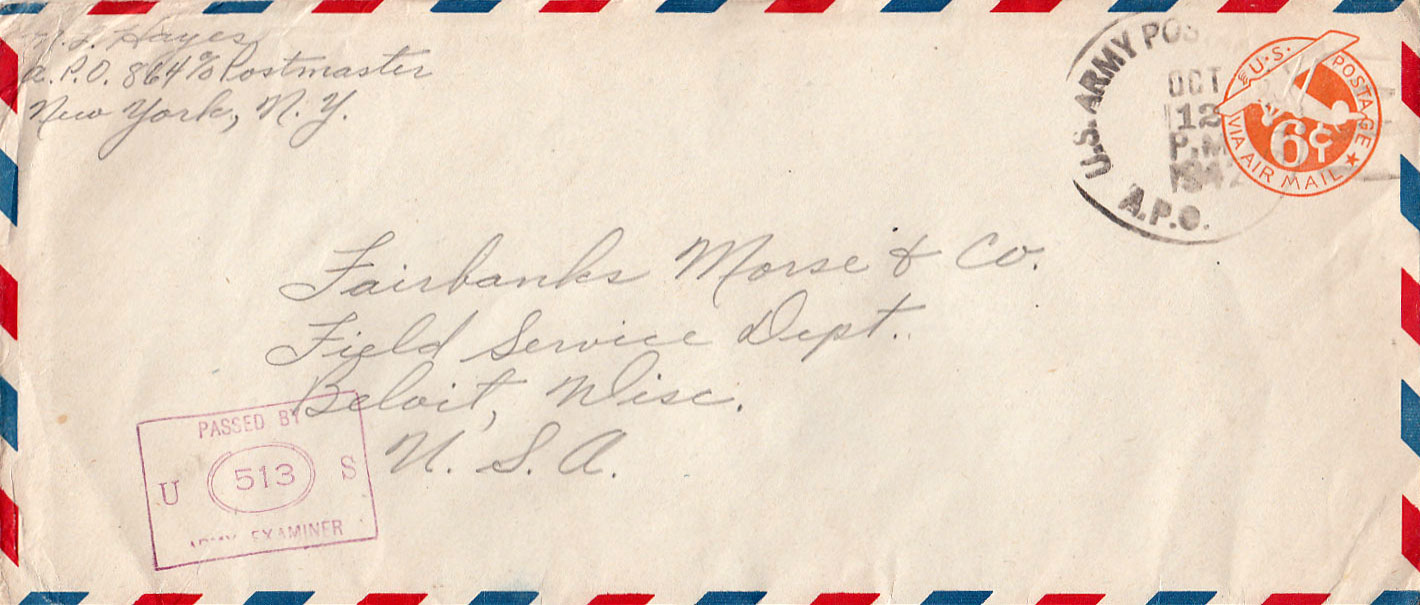 Hayes
A.P.O. 864 c/o Postmaster
New York, N.Y.
U.S. ARMY POS
OCT
12
P.M
1942
A.P.O.
U.S. POSTAGE
6¢
VIA AIR MAIL
Fairbanks Morse & Co.
Field Service Dept.
Beloit, Wisc.
U. S. A.
PASSED BY
U 513 S
ARMY EXAMINER